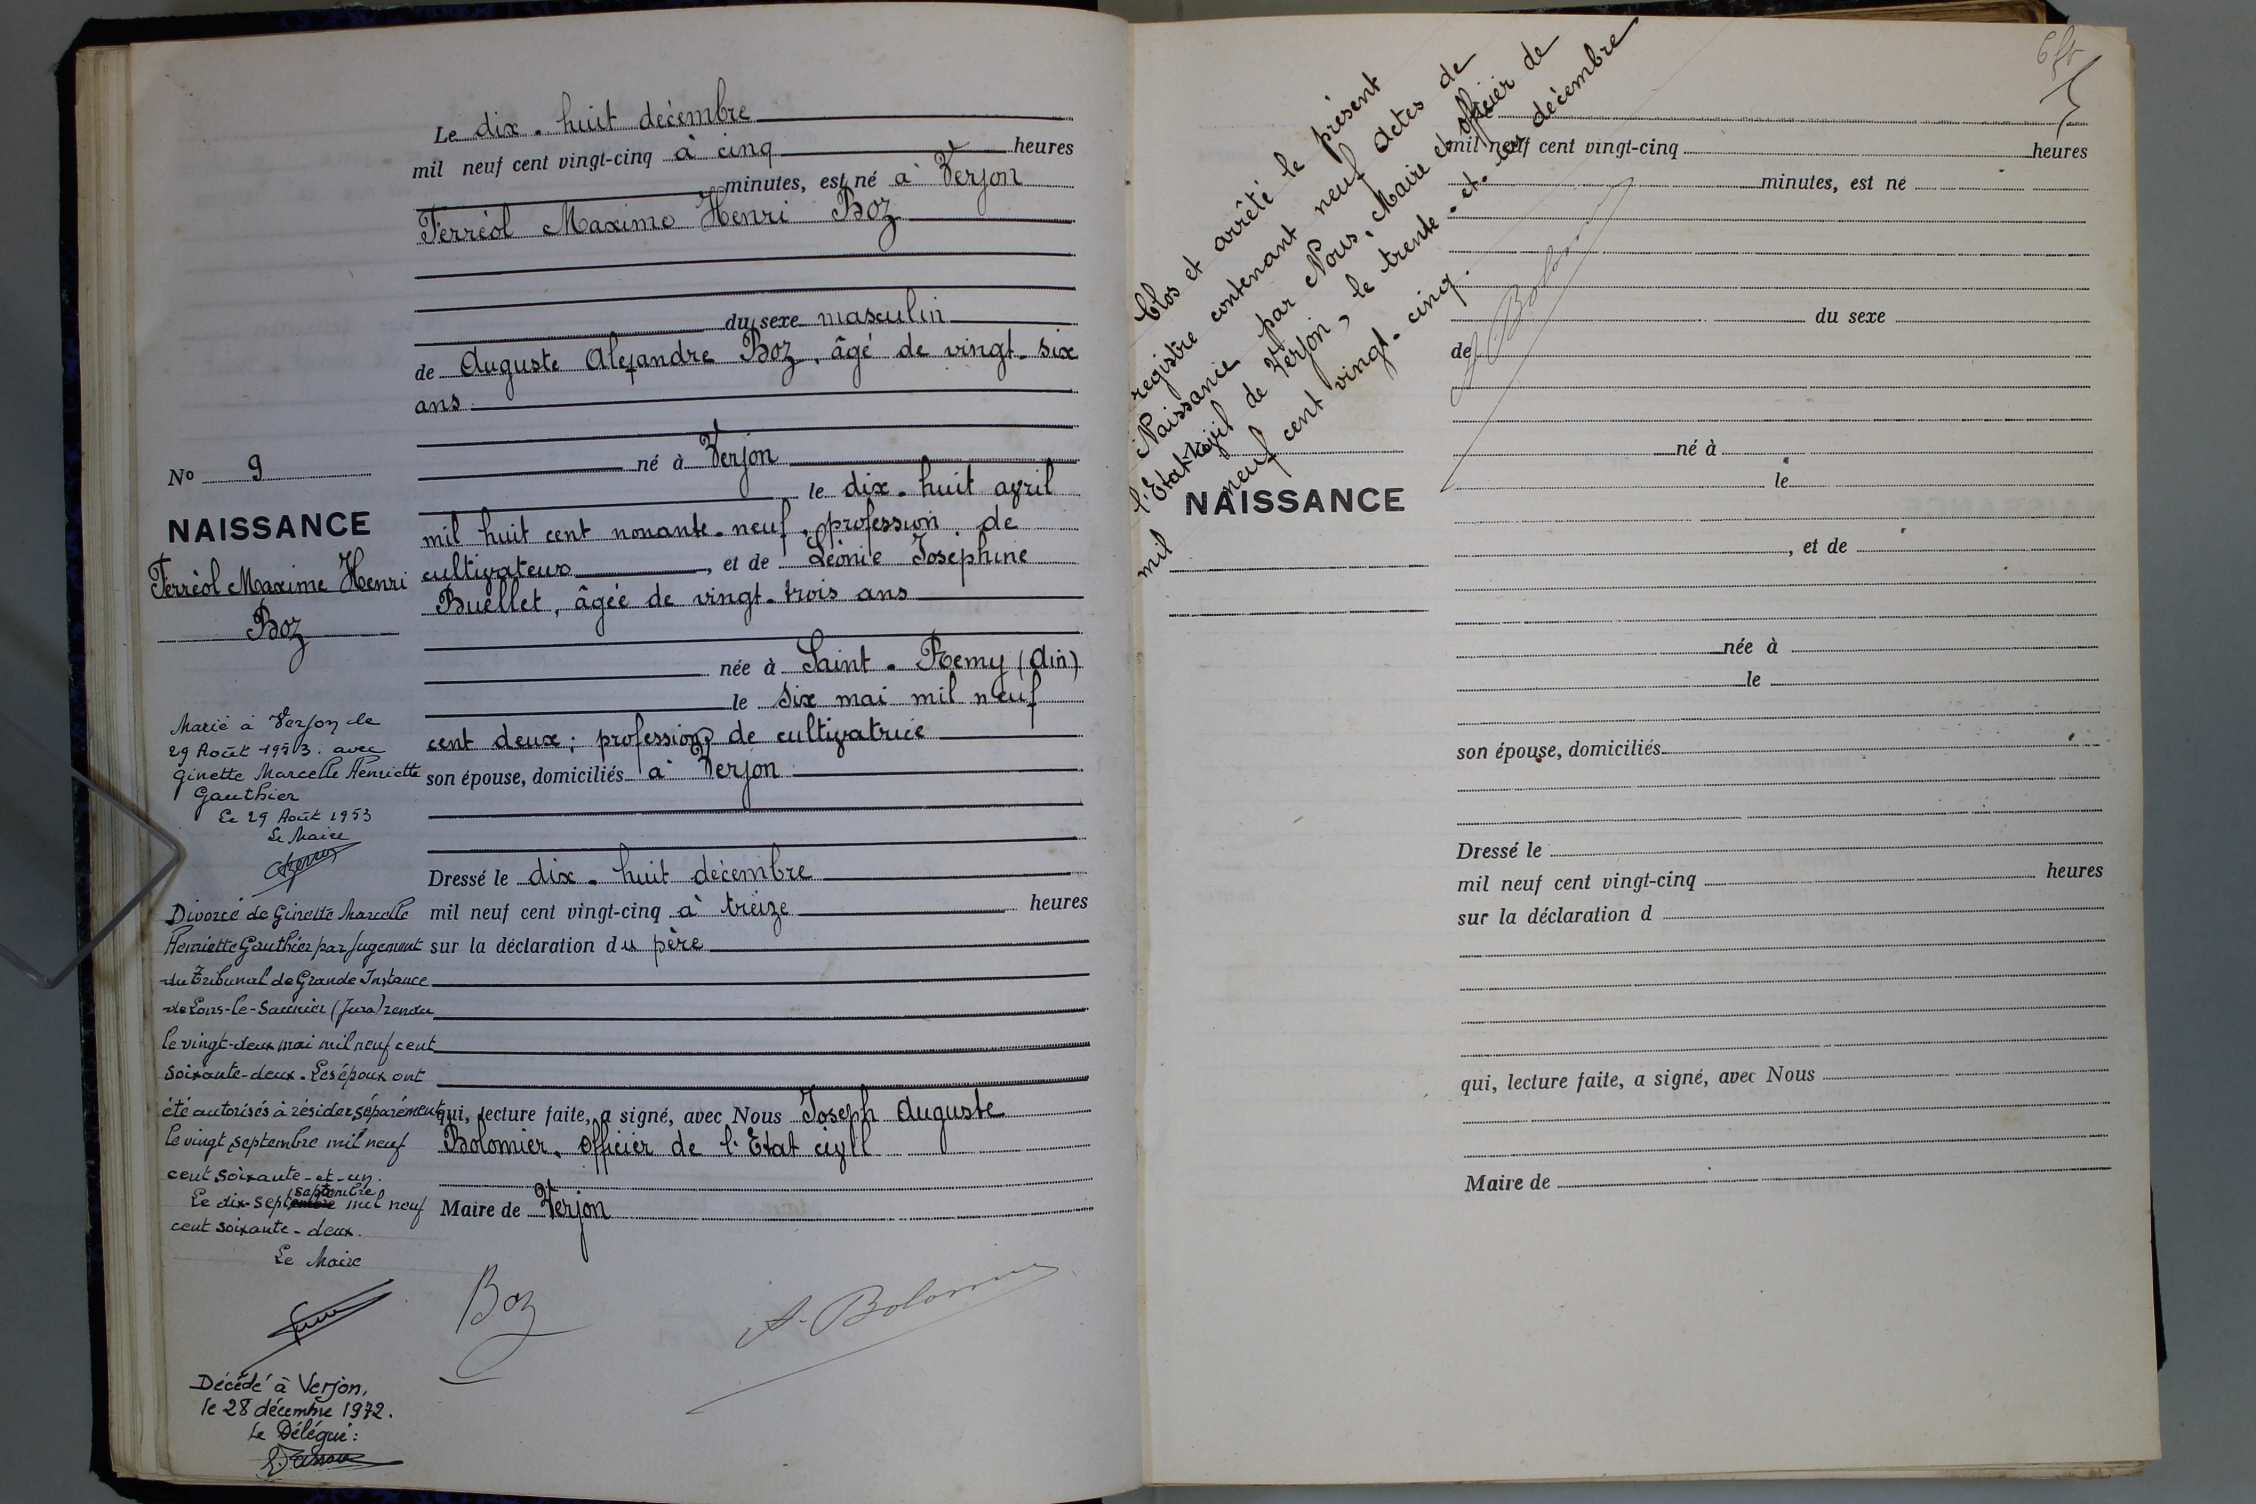 Le dix-huit décembre
mil neuf cent vingt-cinq à cinq heures
minutes, est né à Verjon
Ferréol Maxime Henri Boz
du sexe masculin
de Auguste Alexandre Boz, âgé de vingt-six
ans
né à Verjon
le dix-huit avril
mil huit cent nonante-neuf, profession de
cultivateur, et de Léonie Joséphine
Buellet, âgée de vingt-trois ans
née à Saint-Remy (Ain)
le six mai mil neuf
cent deux; profession de cultivatrice
son épouse, domiciliés à Verjon
Dressé le dix-huit décembre
mil neuf cent vingt-cinq à treize heures
sur la déclaration du père
qui, lecture faite, a signé, avec Nous Joseph Auguste
Bolomier, Officier de l'Etat civil
Maire de Verjon
Boz
A. Bolomier
No 9
NAISSANCE
Ferréol Maxime Henri
Boz
Marié à Verjon le
29 Août 1953. avec
Ginette Marcelle Henriette
Gauthier
Le 29 Août 1953
Le Maire
Divorcé de Ginette Marcelle
Henriette Gauthier par jugement
du Tribunal de Grande Instance
de Lons-le-Saunier (Jura) rendu
le vingt-deux mai mil neuf cent
soixante-deux. Les époux ont
été autorisés à résider séparément
le vingt septembre mil neuf
cent soixante-et-un.
Le dix-sept septembre mil neuf
cent soixante-deux.
Le Maire
Décédé à Verjon,
le 28 décembre 1972.
Le Délégué:
Clos et arrêté le présent
registre contenant neuf actes de
Naissance par Nous, Maire et officier de
l'Etat civil de Verjon, le trente-et-un décembre
mil neuf cent vingt-cinq.
A. Bolomier
mil neuf cent vingt-cinq heures
minutes, est né
du sexe
de
né à
le
NAISSANCE
, et de
née à
le
son épouse, domiciliés
Dressé le
mil neuf cent vingt-cinq heures
sur la déclaration d
qui, lecture faite, a signé, avec Nous
Maire de